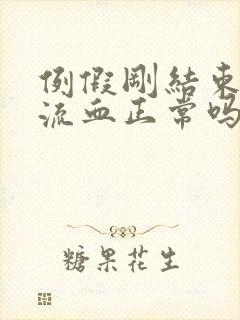 例假剛結束
流血正常吗
糖果花生